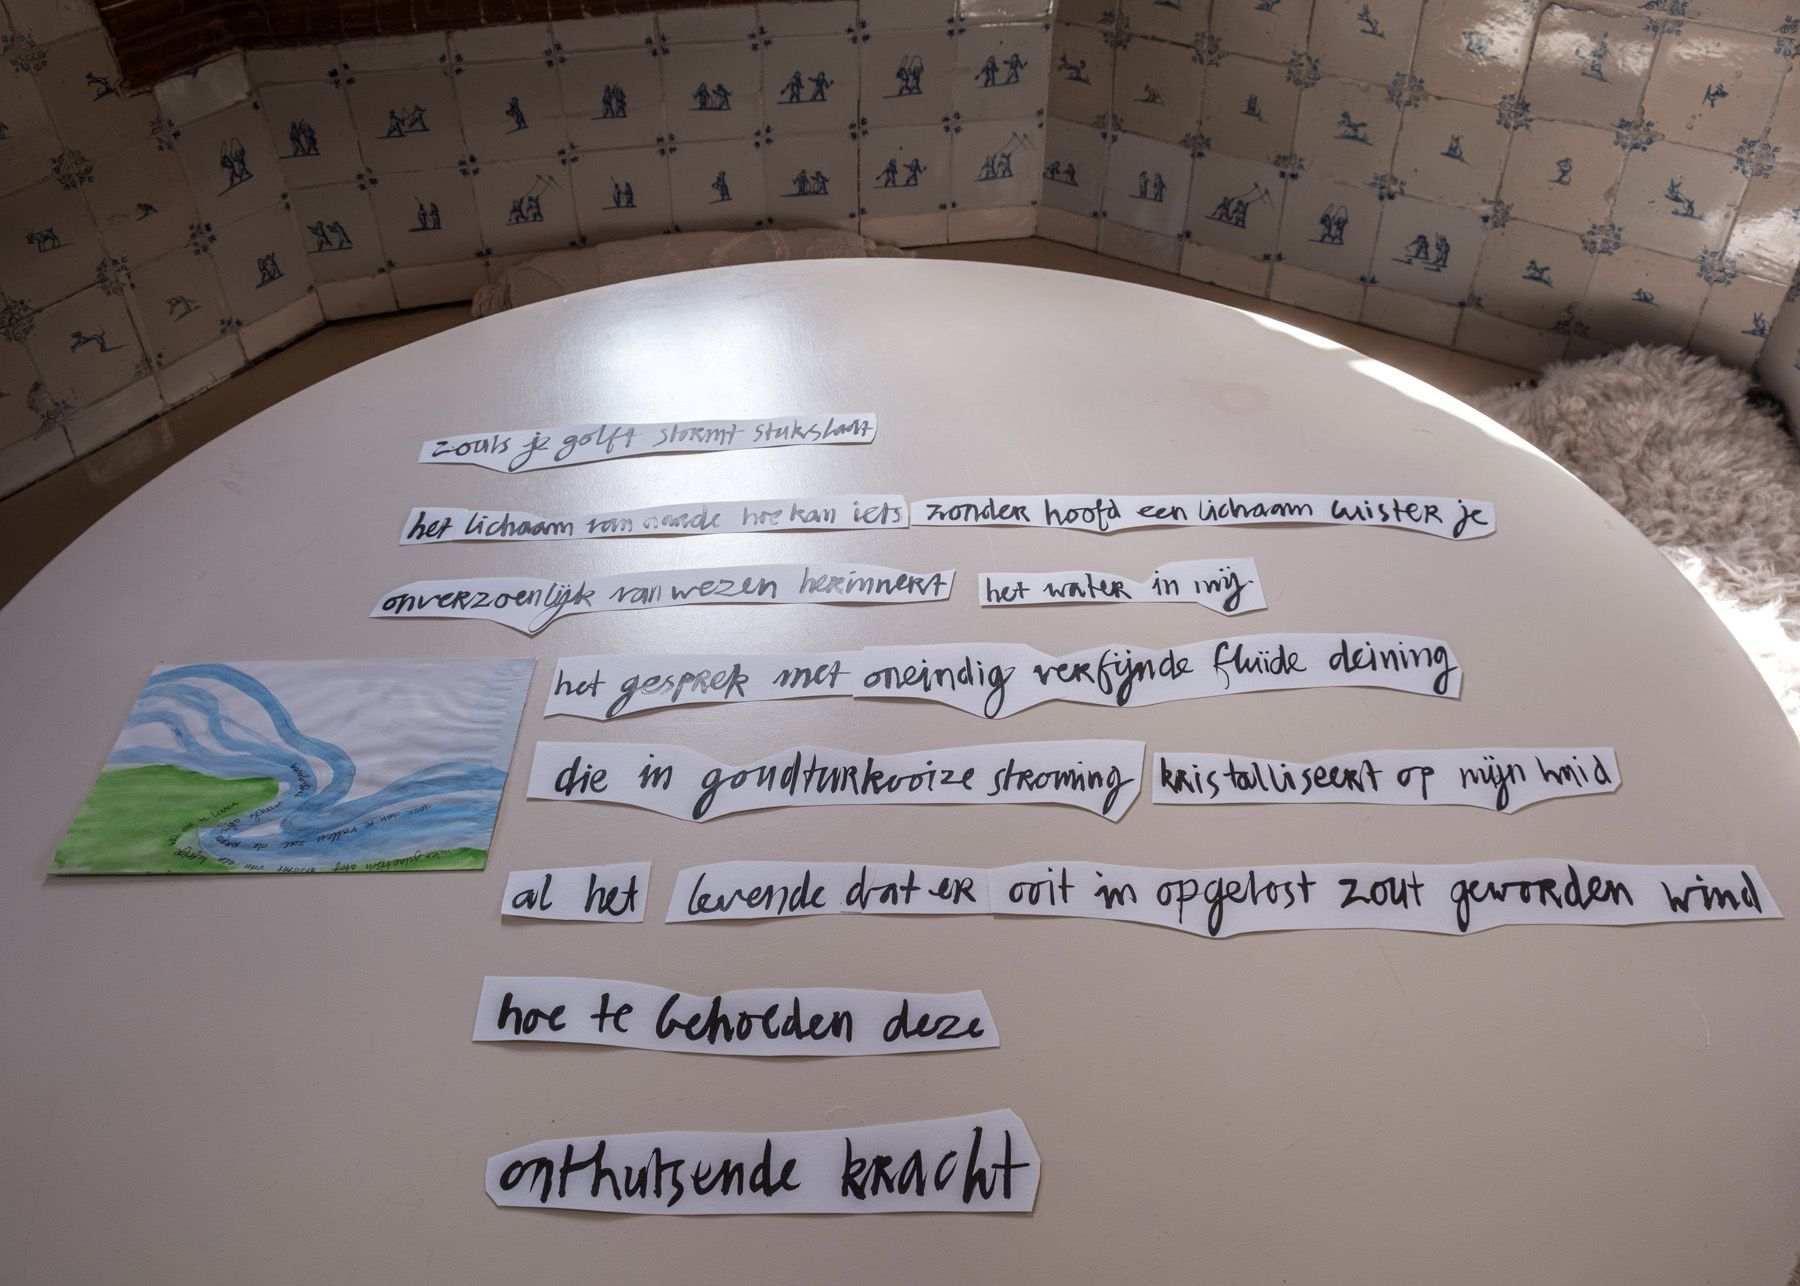 zoals je golft stormt stukslaat
het lichaam van aarde hoe kan iets zonder hoofd een lichaam luister je
onverzoenlijk van wezen herinnert het water in mij
het gesprek met oneindig verfijnde fluïde deining
die in goudturkooize stroming kristalliseert op mijn huid
al het levende dat er ooit in opgelost zout geworden wind
hoe te behoeden deze
onthutsende kracht